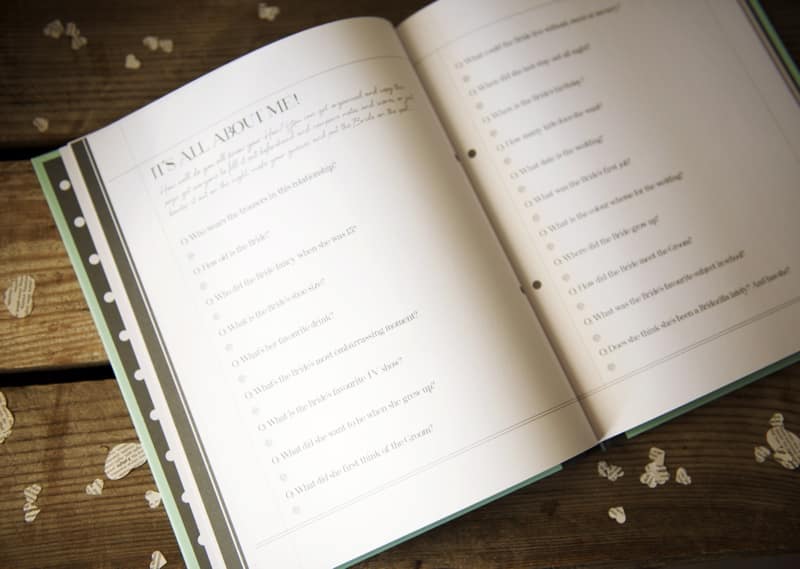 IT'S ALL ABOUT ME!
How well do you all know your Hen? You can get organised and copy this
page, get everyone to fill it out beforehand and compare notes and scores, or just
it out on the night, make your guesses and put the Bride on the spot...
Q. Who wears the trousers in this relationship?
Q. How old is the Bride?
Q. Who did the Bride fancy when she was 12?
Q. What is the Bride's shoe size?
Q. What's her favourite drink?
Q. What's the Bride's most embarrassing moment?
Q. What is the Bride's favourite TV show?
Q. What did she want to be when she grew up?
Q. What did she first think of the Groom?
Q. What could the Bride live without, sweet or savoury?
Q. When did she last stay out all night?
Q. When is the Bride's birthday?
Q. How many kids does she want?
Q. What date is the wedding?
Q. What was the Bride's first job?
Q. What is the colour scheme for the wedding?
Q. Where did the Bride grow up?
Q. How did the Bride meet the Groom?
Q. What was the Bride's favourite subject in school?
Q. Does she think she's been a Bridezilla lately? And has she?